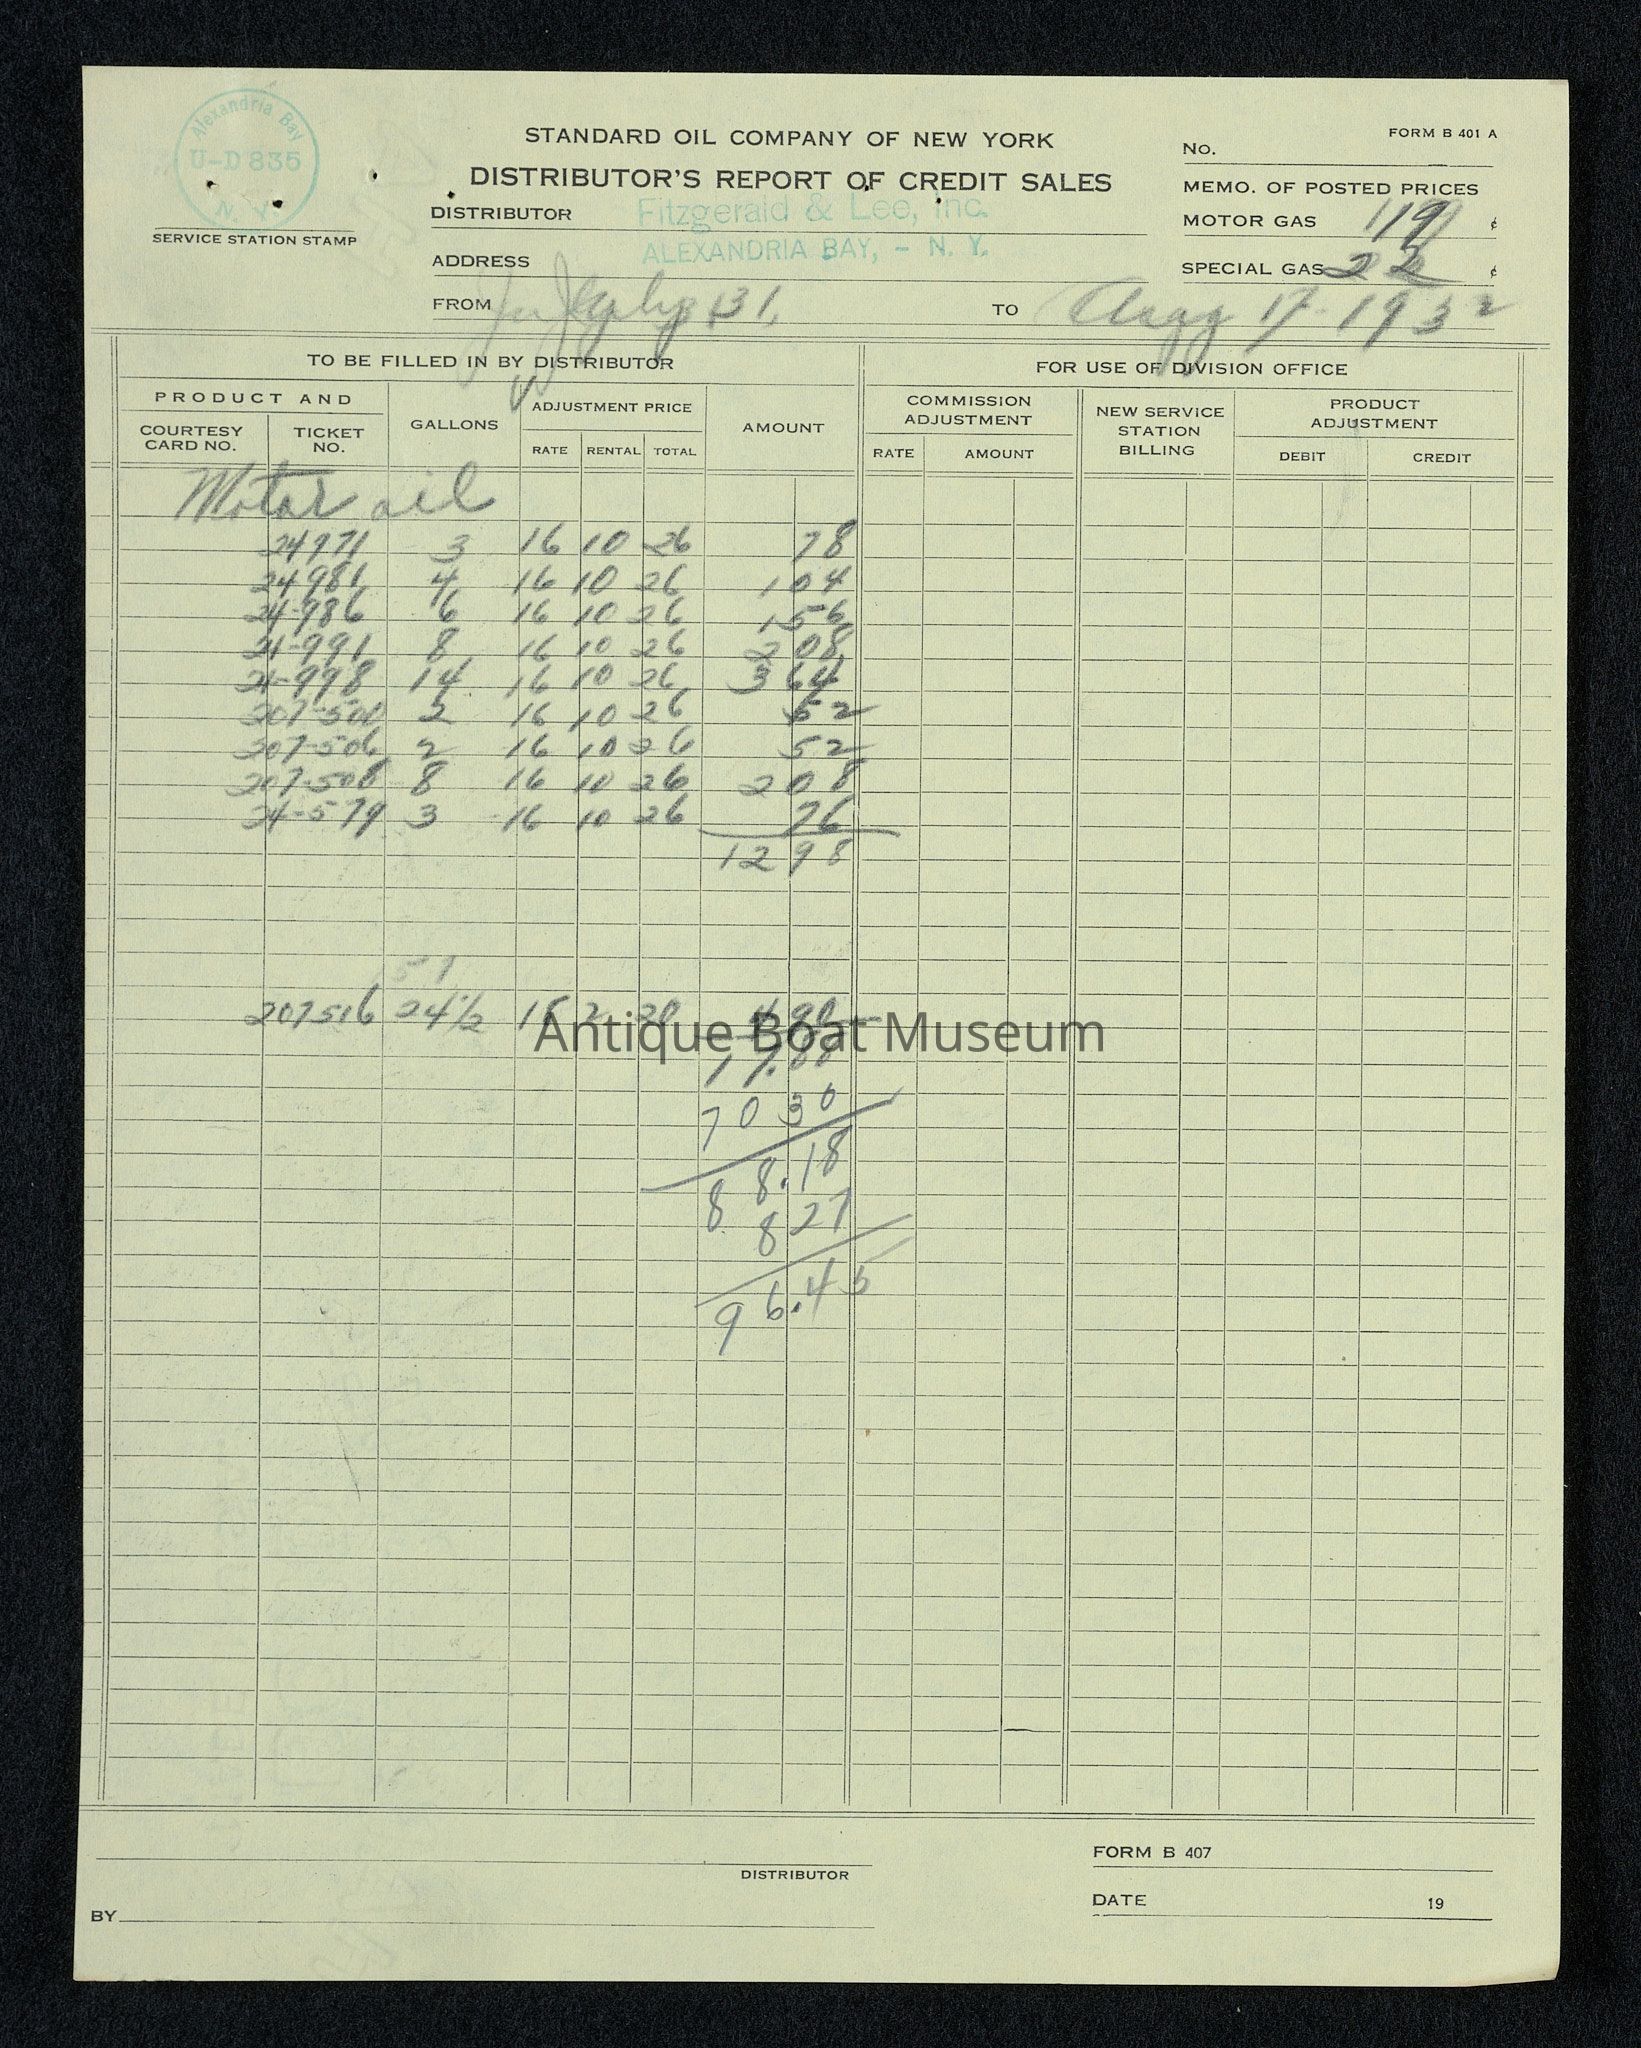 Alexandria Bay
U-D 835
N. Y.
SERVICE STATION STAMP
STANDARD OIL COMPANY OF NEW YORK
DISTRIBUTOR'S REPORT OF CREDIT SALES
DISTRIBUTOR Fitzgerald & Lee, Inc.
ALEXANDRIA BAY, - N. Y.
ADDRESS
FROM July 31, TO Aug 17-1932
FORM B 401 A
No.
MEMO. OF POSTED PRICES
MOTOR GAS 19 ¢
SPECIAL GAS 22 ¢
TO BE FILLED IN BY DISTRIBUTOR FOR USE OF DIVISION OFFICE
PRODUCT AND GALLONS ADJUSTMENT PRICE AMOUNT COMMISSION ADJUSTMENT NEW SERVICE STATION BILLING PRODUCT ADJUSTMENT
COURTESY CARD NO. TICKET NO. RATE RENTAL TOTAL RATE AMOUNT DEBIT CREDIT
Motor oil
24971 3 16 10 26 78
24981 4 16 10 26 104
24-986 6 16 10 26 156
24-991 8 16 10 26 208
24-998 14 16 10 26 364
207-500 2 16 10 26 52
207-506 2 16 10 26 52
207-508 8 16 10 26 208
24-579 3 16 10 26 76
1298
51
207516 24½ 18 2 20 4 90
Antique Boat Museum
70 30
88.18
8 27
96.45
DISTRIBUTOR
BY
FORM B 407
DATE 19